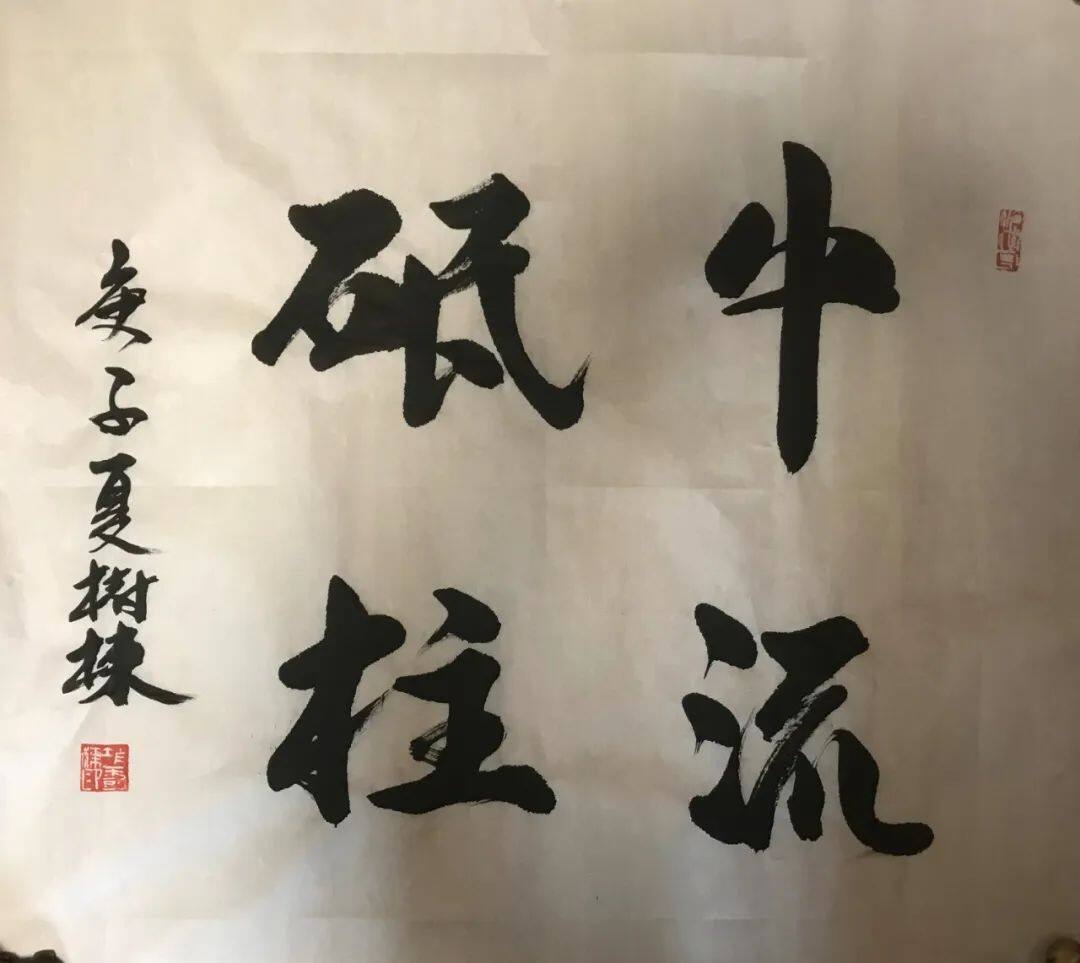 中流
砥柱
庚子夏樹棟